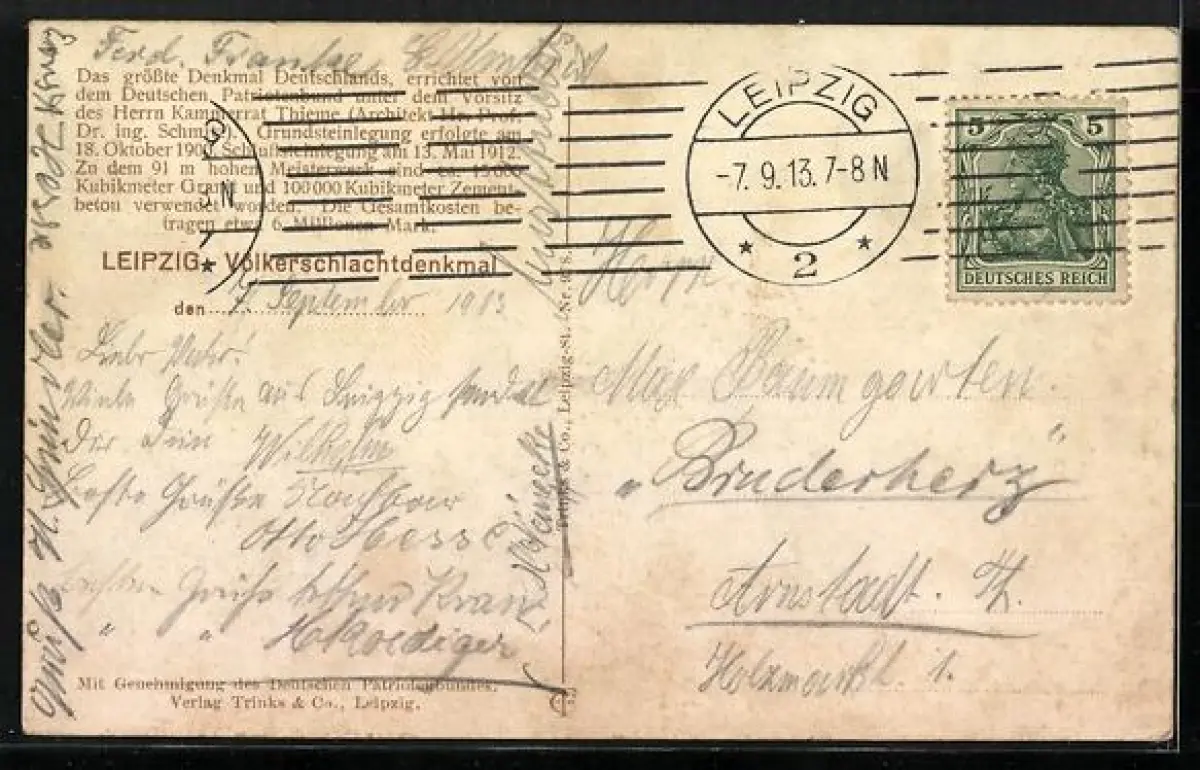 Ferd. Franke,
Das größte Denkmal Deutschlands, errichtet von
dem Deutschen Patriotenbund unter dem Vorsitz
des Herrn Kammerrat Thieme (Architekt Hr. Prof.
Dr. ing. Schmitz). Grundsteinlegung erfolgte am
18. Oktober 1900, Schlußsteinlegung am 13. Mai 1912.
Zu dem 91 m hohen Meisterwerk sind ca. 15000
Kubikmeter Granit und 100000 Kubikmeter Zement-
beton verwendet worden. Die Gesamtkosten be-
tragen etwa 6 Millionen Mark.
LEIPZIG - Völkerschlachtdenkmal
den 7. September 1913
Lieber Vater!
Viele Grüße aus Leipzig sendet
Dir Dein Wilhelm
Beste Grüße
Otto Hesse
Besten Gruß
" " Roediger
Gruß
Mit Genehmigung des Deutschen Patriotenbundes.
Verlag Trinks & Co., Leipzig.
Trinks & Co., Leipzig-St.
LEIPZIG
-7.9.13.7-8 N
* 2 *
5 5
DEUTSCHES REICH
Herrn
Max Baumgarten.
„Bruderherz"
Arnstadt. Th.
Holzmarkt 1.